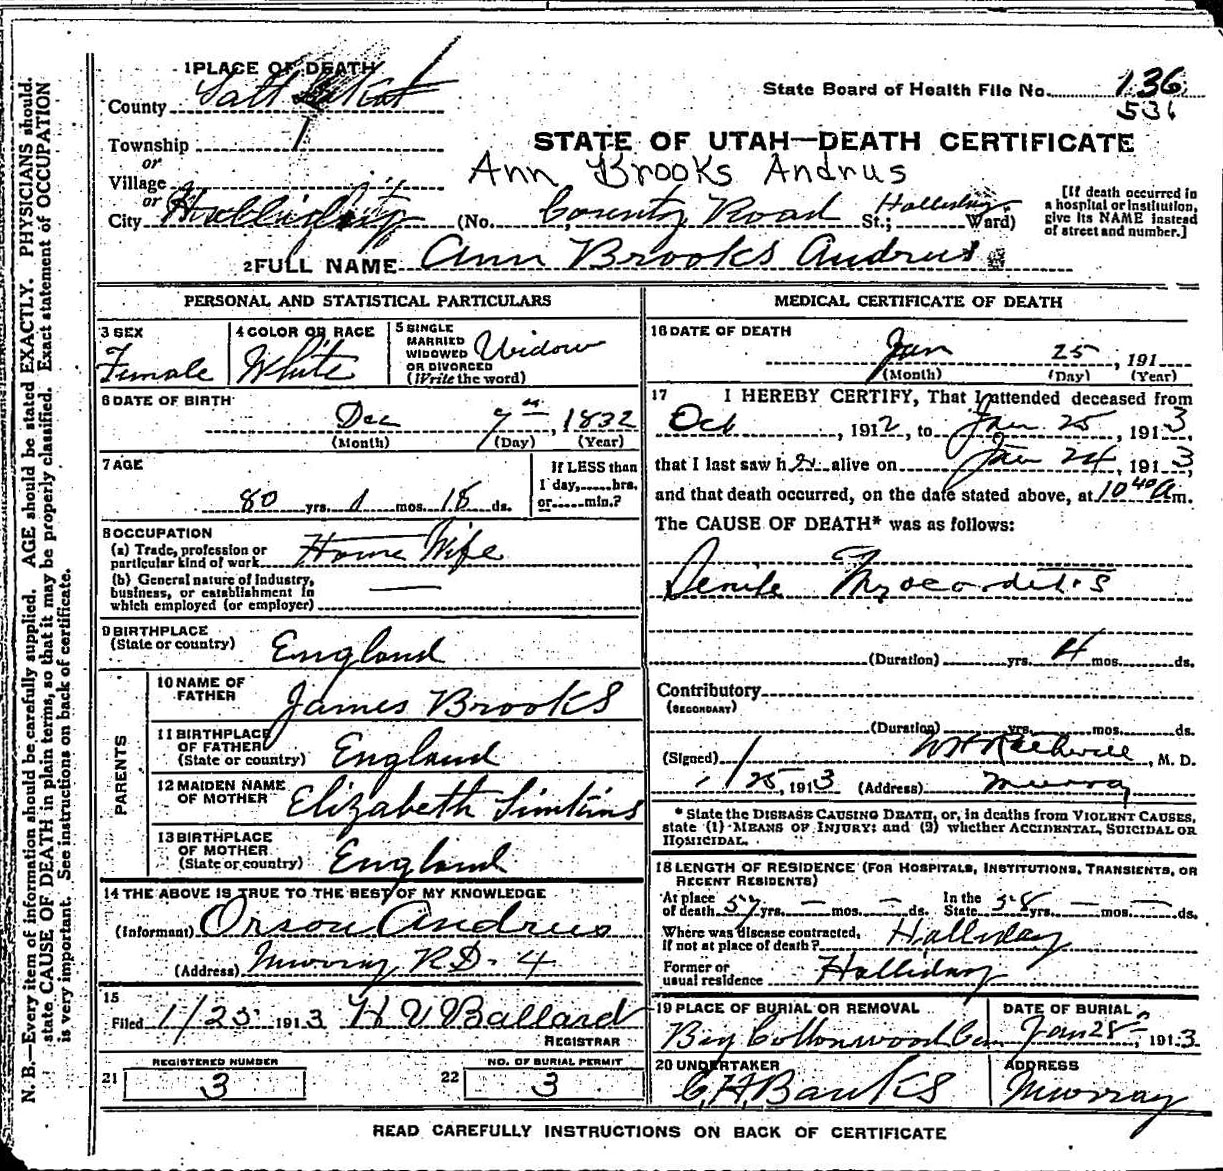 N. B.—Every item of information should be carefully supplied. AGE should be stated EXACTLY. PHYSICIANS should
state CAUSE OF DEATH in plain terms, so that it may be properly classified. Exact statement of OCCUPATION
is very important. See instructions on back of certificate.
1 PLACE OF DEATH
County Salt Lake
State Board of Health File No. 136
536
Township
or
Village
or
City
STATE OF UTAH—DEATH CERTIFICATE
Ann Brooks Andrus
(No. County Road St.; Holliday Ward)
[If death occurred in
a hospital or institution,
give its NAME instead
of street and number.]
2 FULL NAME Ann Brooks Andrus
PERSONAL AND STATISTICAL PARTICULARS
3 SEX
Female
4 COLOR OR RACE
White
5 SINGLE
MARRIED
WIDOWED
OR DIVORCED
(Write the word)
Widow
6 DATE OF BIRTH
Dec 7th, 1832
(Month) (Day) (Year)
7 AGE
80 yrs. 1 mos. 18 ds.
If LESS than
1 day,......hrs.
or......min.?
8 OCCUPATION
(a) Trade, profession or
particular kind of work House Wife
(b) General nature of Industry,
business, or establishment in
which employed (or employer)
9 BIRTHPLACE
(State or country) England
PARENTS
10 NAME OF
FATHER James Brooks
11 BIRTHPLACE
OF FATHER
(State or country) England
12 MAIDEN NAME
OF MOTHER Elizabeth Simkins
13 BIRTHPLACE
OF MOTHER
(State or country) England
14 THE ABOVE IS TRUE TO THE BEST OF MY KNOWLEDGE
(Informant) Orson Andrus
(Address) Murray R.D. 4
15
Filed 1/25 1913 H V Ballard
REGISTRAR
REGISTERED NUMBER
21 3
NO. OF BURIAL PERMIT
22 3
MEDICAL CERTIFICATE OF DEATH
16 DATE OF DEATH
Jan 25, 191
(Month) (Day) (Year)
17 I HEREBY CERTIFY, That I attended deceased from
Oct, 1912, to Jan 25, 1913,
that I last saw her alive on Jan 24, 1913,
and that death occurred, on the date stated above, at 10 40 A m.
The CAUSE OF DEATH* was as follows:
Senile Myocarditis
(Duration) yrs. 4 mos. ds.
Contributory
(SECONDARY)
(Duration) yrs. mos. ds.
(Signed) , M. D.
1/25, 1913 (Address) Murray
* State the DISEASE CAUSING DEATH, or, in deaths from VIOLENT CAUSES,
state (1) MEANS OF INJURY; and (2) whether ACCIDENTAL, SUICIDAL OR
HOMICIDAL.
18 LENGTH OF RESIDENCE (FOR HOSPITALS, INSTITUTIONS, TRANSIENTS, OR
RECENT RESIDENTS)
At place
of death 57 yrs. — mos. — ds.
In the
State 58 yrs. — mos. — ds.
Where was disease contracted,
If not at place of death? Holliday
Former or
usual residence Holliday
19 PLACE OF BURIAL OR REMOVAL
Big Cottonwood Cem
DATE OF BURIAL
Jan 28, 1913
20 UNDERTAKER
C. H. Banks
ADDRESS
Murray
READ CAREFULLY INSTRUCTIONS ON BACK OF CERTIFICATE